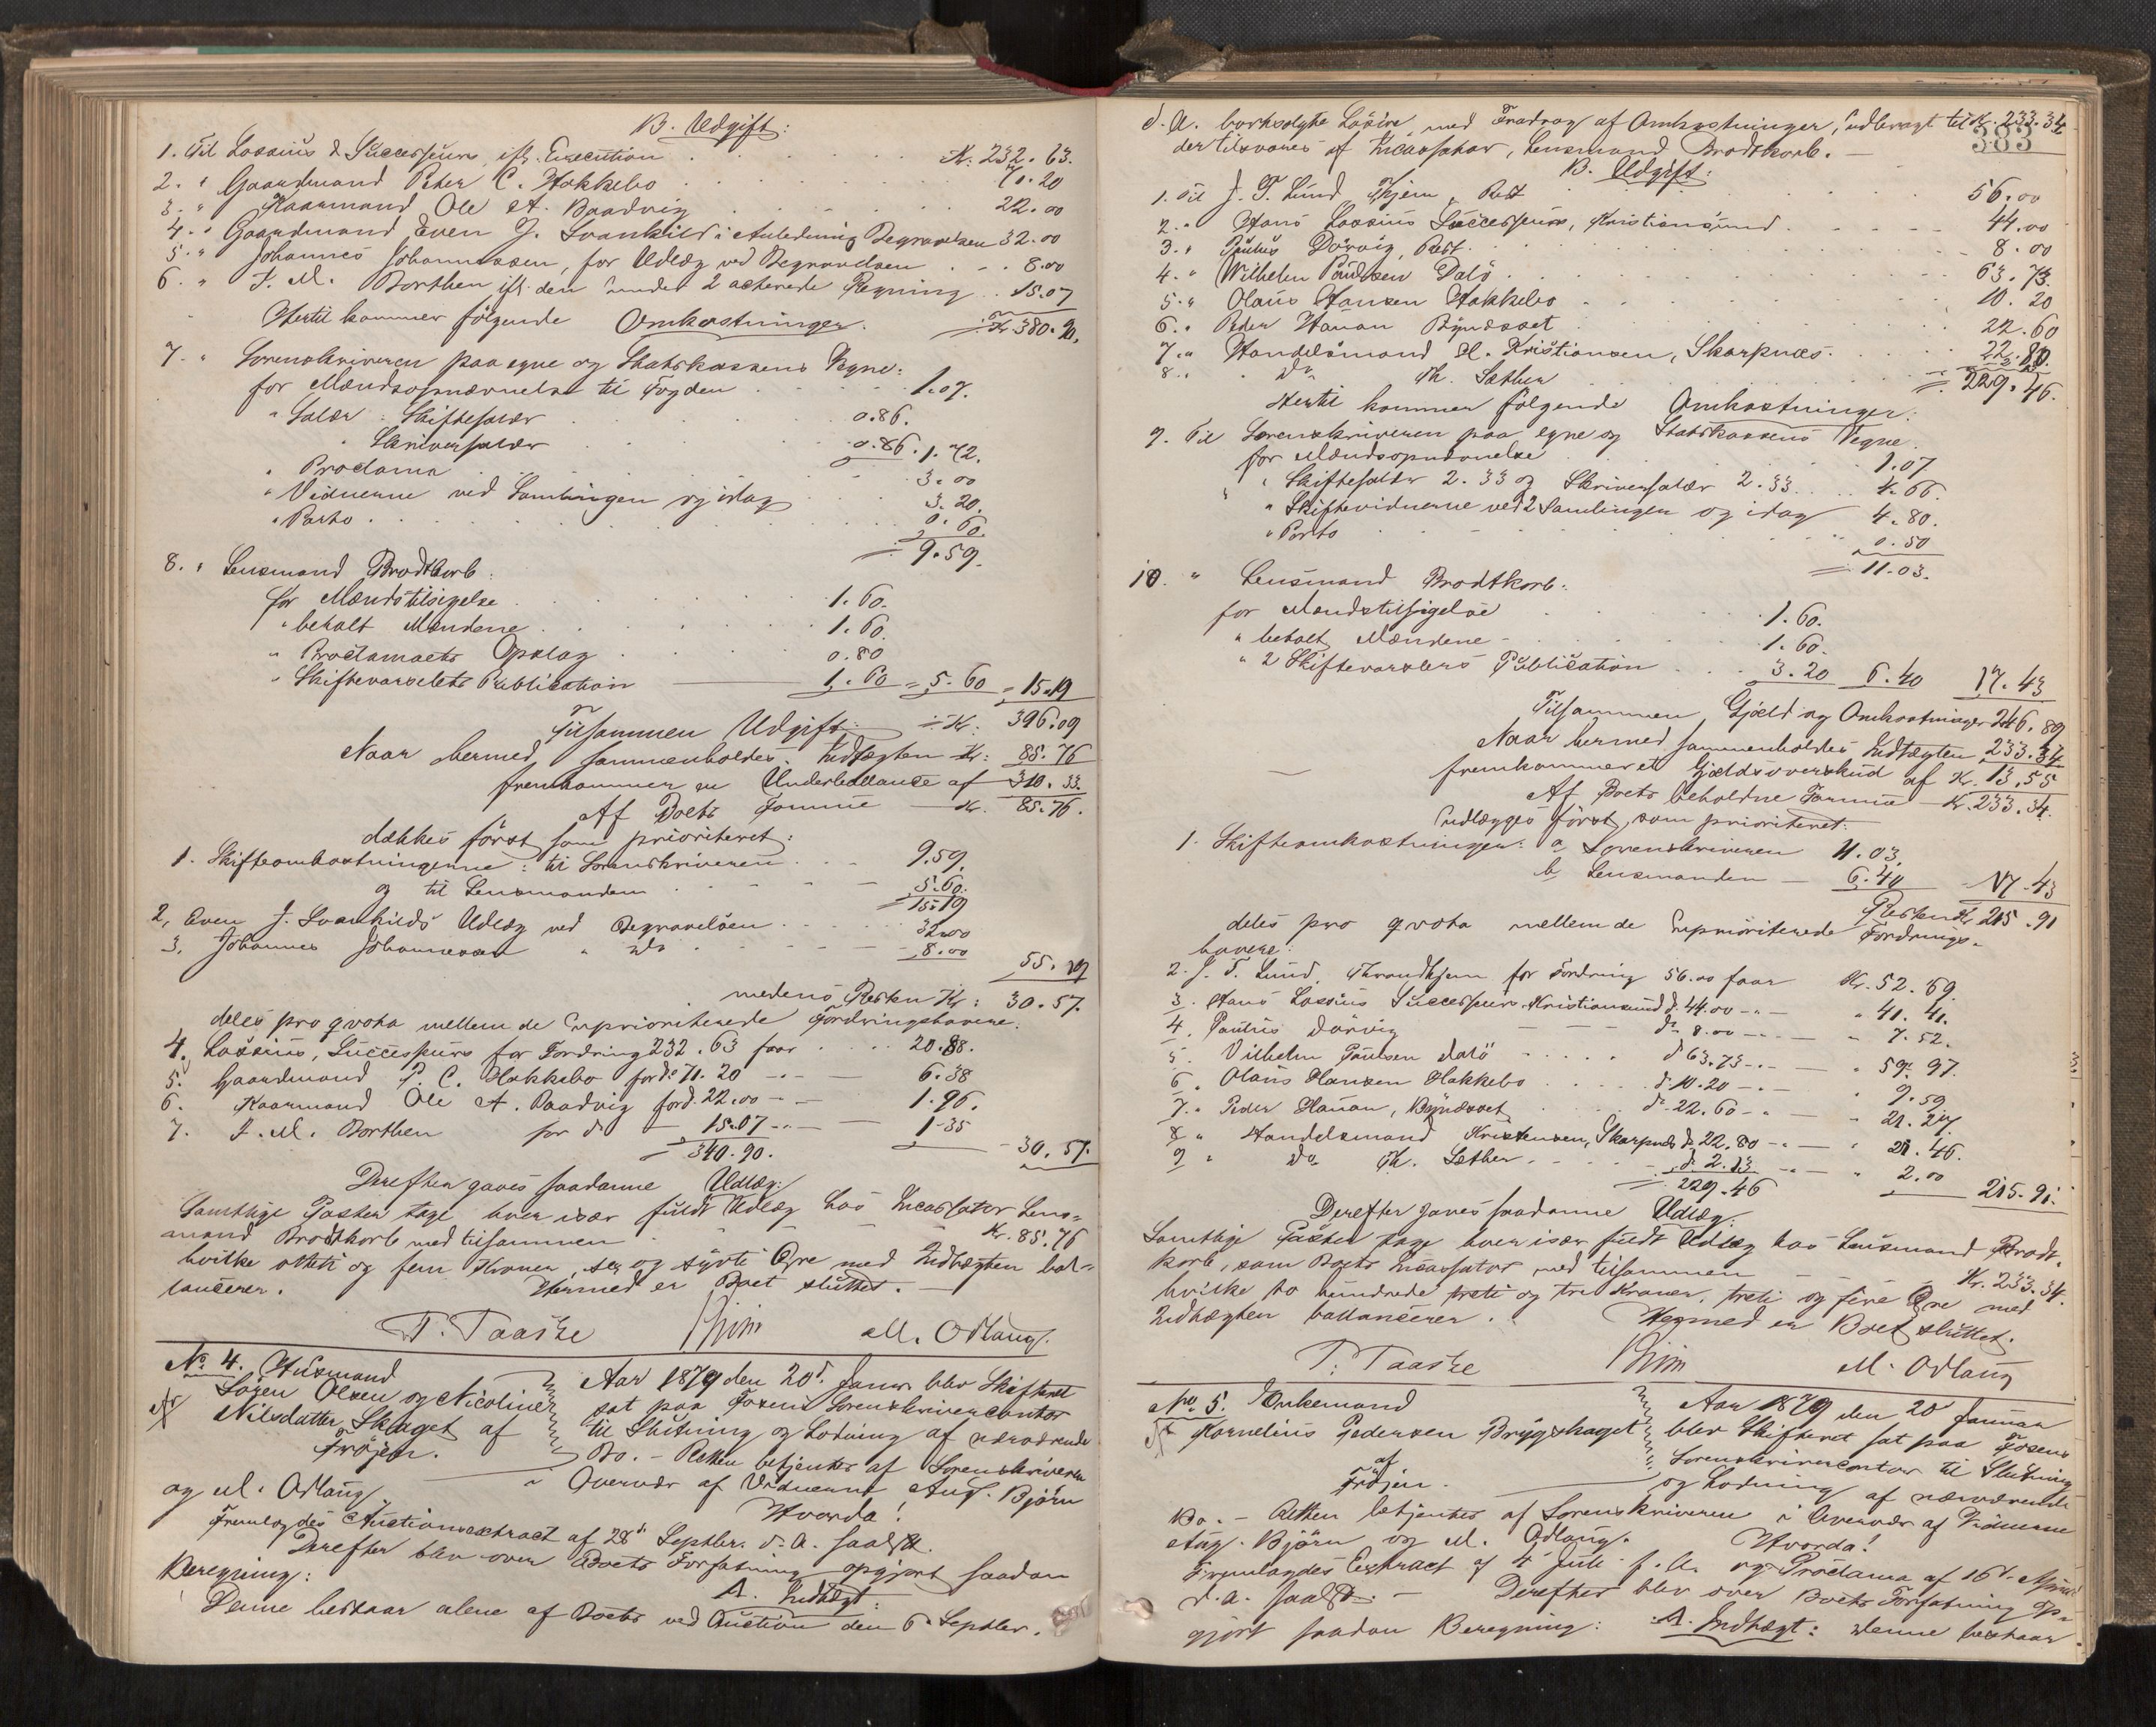 B. Udgift:
1. Til Lossius & Successeurs, ifl. Execution . . . . . . . K. 232. 63.
2. " Gaardmand Peter C. Hokkebo . . . . . . . 71. 20
3. " Kaarmand Ole A. Baadvig . . . . . . . 22. 00
4. " Gaardmand Even J. Svankild i Anledning Begravelsen 32. 00
5. " Johannes Johannessen, for Udlæg ved Begravelsen . . . 8.00
6. " J. M. Borthen ifl. den under 2 acterede Regning . . 15.07
Hertil kommer følgende Omkostninger. Kr. 380. 90.
7. " Sorenskriveren paa egne og Statskassens Vegne:
for Mændsopnævnelse til Fogden . . . . 1.07.
" Salær: Skiftesalær . . . . 0.86.
" Skriversalær . . . . 0.86. 1. 72.
" Proclama . . . . 3. 00
" Vidnerne ved Samlingen og idag . . 3. 20.
" Porto . . . . . . 0. 60.
= 9. 59.
8. " Lensmand Brodtkorb:
for Mændstilsigelse . . . . 1. 60.
" behalt Mændene . . . . 1. 60.
" Proclamaets Opslag . . . . 0. 80
" Skiftevarselets Publication 1. 60 = 5. 60 = 15.19
Tilsammen Udgift: = Kr. 396. 09
Naar hermed sammenholdes Indtægten Kr: 85. 76
fremkommer en Underballance af 310. 33.
Af Boets Formue Kr. 85. 76.
dækkes først som prioriteret:
1. Skifteomkostningerne: til Sorenskriveren . . . 9. 59.
og til Lensmanden . . . . 5. 60.
= 15. 19
2, Even J. Svankilds Udlæg ved Begravelsen . . . . 32.00
3. Johannes Johannessen " do . . . 8. 00
55. 19
medens Resten Kr: 30. 57.
deles pro qvota mellem de uprioriterede Fordringshavere.
4. Lossius, Successeurs for Fordring 232. 63 faar . . . . 20. 88.
5. Gaardmand P. C. Hokkebo for do 71. 20 - " - 6. 38
6. Kaarmand Ole A. Baadvig for d. 22. 00 - - 1. 96.
7. J. M. Borthen for d - 15. 07 - " - 1-35
= 340. 90. - 30. 57.
Derefter gaves saadanne Udlæg:
Samtlige Poster tage hver især fuldt Udlæg hos Incassator Lens=
mand Brodtkorb med tilsammen Kr. 85. 76
hvilke otteti og fem Kroner, sex og syvti Øre med Indtægten bal=
lancerer. Hermed er Boet sluttet. —
T. Taaske Bjørn M. Odlaug.
No 4. Husmand
Sören Olsen og Nicoline
Nilsdatter Skaget af
Fröjen.
Aar 1879 den 20d. Januar blev Skifteret
sat paa Fosens Sorenskrivercontor
til Slutning og Lodning af nærværende
Bo. - Retten betjentes af Sorenskriveren
i Overvær af Vidnerne Aug. Björn
og M. Odlaug Hvorda!
Fremlagdes Auctionsextract af 28d Septbr. d. A. saal.
Derefter blev over Boets Forfatning opgjort saadan
Beregning:
A. Indtægt:
Denne bestaar alene af Boets ved Auction den 6. Septbr.
d. A. bortsolgte Løsöre, med Fradrag af Omkostninger, udbragt til Kr. 233. 34
383
der tilsvares af Incassator, Lensmand Brodtkorb. —
B. Udgift:
1. Til J. T. Lund, Thjem, Rest . . . . . 56. 00
2. " Hans Lossius Successeurs, Kristiansund . . . . 44. 00
3. " Paulus Dørvig, Rest . . . . . 8. 00
4. " Wilhelm Paulsen Dalö . . . . . 63. 73.
5. " Olaus Hansen Hokkebo . . . . . 10. 20
6. " Peder Hanan Byndsset . . . . . 22. 60
7. " Handelsmand H. Kristiansen, Skarpnæs . . . . . 22. 80.
8. " do Th. Sæther . . . . .
= 229. 46.
Hertil kommer følgende Omkostninger:
9. Til Sorenskriveren paa egne og Statskassens Vegne
for Mændsopnævnelse . . . . 1. 07
" Skiftesalær 2. 33 og Skriversalær 2. 33 . . . 4. 66.
" Skiftevidnerne ved 2 Samlinger og idag 4. 80.
" Porto . . . . 0. 50
= 11. 03.
10. " Lensmand Brodtkorb:
for Mændstilsigelse . . . 1. 60.
" behalt Mændene - . . . 1. 60.
" 2 Skiftevarslers Publication . . . 3. 20 6. 40 17. 43
Tilsammen Gjæld og Omkostninger 246. 89
Naar hermed sammenholdes Indtægten 233. 34
fremkommer et Gjældsoverskud af Kr. 13. 55
Af Boets beholdne Formue - Kr. 233. 34.
udlægges først, som prioriteret:
1. Skifteomkostninger: a, Sorenskriveren 11. 03.
b, Lensmanden — 6. 40 - 17. 43
Resten Kr 215. 91
deles pro qvota mellem de uprioriterede Fordrings=
havere:
2. J. T. Lund, Throndhjem for Fordring 56. 00 faar Kr. 52. 69.
3. Hans Lossius Successeurs Kristiansund do 44. 00 - " - " 41. 41.
4. Paulus Dørvig — — do 8. 00 - " — " 7. 52.
5. Vilhelm Paulsen Dalö . . . . d 63. 73 - " — " 59. 97.
6. Olaus Hansen Hokkebo . . . . d. 10. 20 - " — " 9. 59
7. " Peder Hanan, Byndsset . . do 22. 60 - " — " 21. 27.
8 " Handelsmand Kristensen, Skarpnæs d. 22. 80 - " — " 21. 46.
9 " do Th. Sæther . . . . d. 2. 13 - " — " 2. 00
= 229. 46 215. 91.
Derefter gaves saadanne Udlæg:
Samtlige Poster tage hver især fuldt Udlæg hos Lensmand Brodt=
korb, som Boets Incassator med tilsammen Kr. 233. 34.
hvilke to hundrede treti og tre Kroner, treti og fire Øre med
Indtægten ballancerer. Hermed er Boet sluttet.
T. Taaske Bjørn M. Odlaug
No 5. Enkemand
Kornelius Pedersen Brygshaget
af
Fröjen.
Aar 1879 den 20 Januar
blev Skifteret sat paa Fosens
Sorenskrivercontor til Slutning
og Lodning af nærværende
Bo. - Retten betjentes af Sorenskriveren i Overvær af Vidnerne
Aug. Björn og M. Odlaug. Hvorda!
Fremlagdes Extract af 4 Juli f. A. og Proclama af 16d.
d. a. saal. - Derefter blev over Boets Forfatning op=
gjort saadan Beregning: A. Indtægt: Denne bestaar